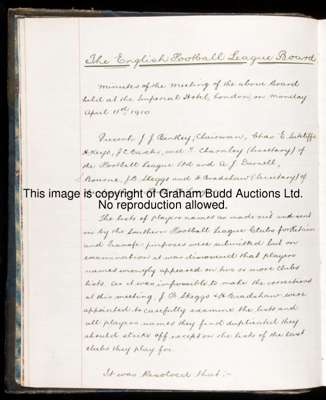 The English Football League Board
Minutes of the meeting of the above Board
held at the Imperial Hotel, London, on Monday
April 11th 1910.
Present J J Bentley, Chairman, Chas E Sutcliffe
and T Charnley (Secretary) of
the Football League Ltd and A J Darnell,
Bourne, J B Skeggs and H Bradshaw (Secretary) of
This image is copyright of Graham Budd Auctions Ltd.
No reproduction allowed.
The lists of players names as made out and sent
in by the Southern Football League Clubs for Retain
and Transfer purposes were submitted but on
examination it was discovered that players
names wrongly appeared on two or more Clubs
lists. As it was impossible to make the corrections
at this meeting, J B Skeggs & H Bradshaw were
appointed to carefully examine the lists and
all players names they find duplicated they
should strike off except on the lists of the last
clubs they play for.
It was Resolved that :-